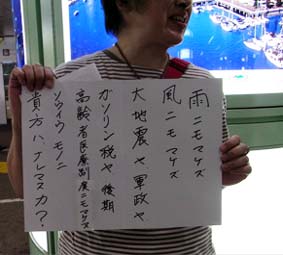 雨ニモマケズ
風ニモマケズ
大地震ヤ軍政ヤ
ガソリン税ヤ後期
高齢者医療制度ニモマケズ
ソウイウモノニ
貴方ハ、ナレマスカ?